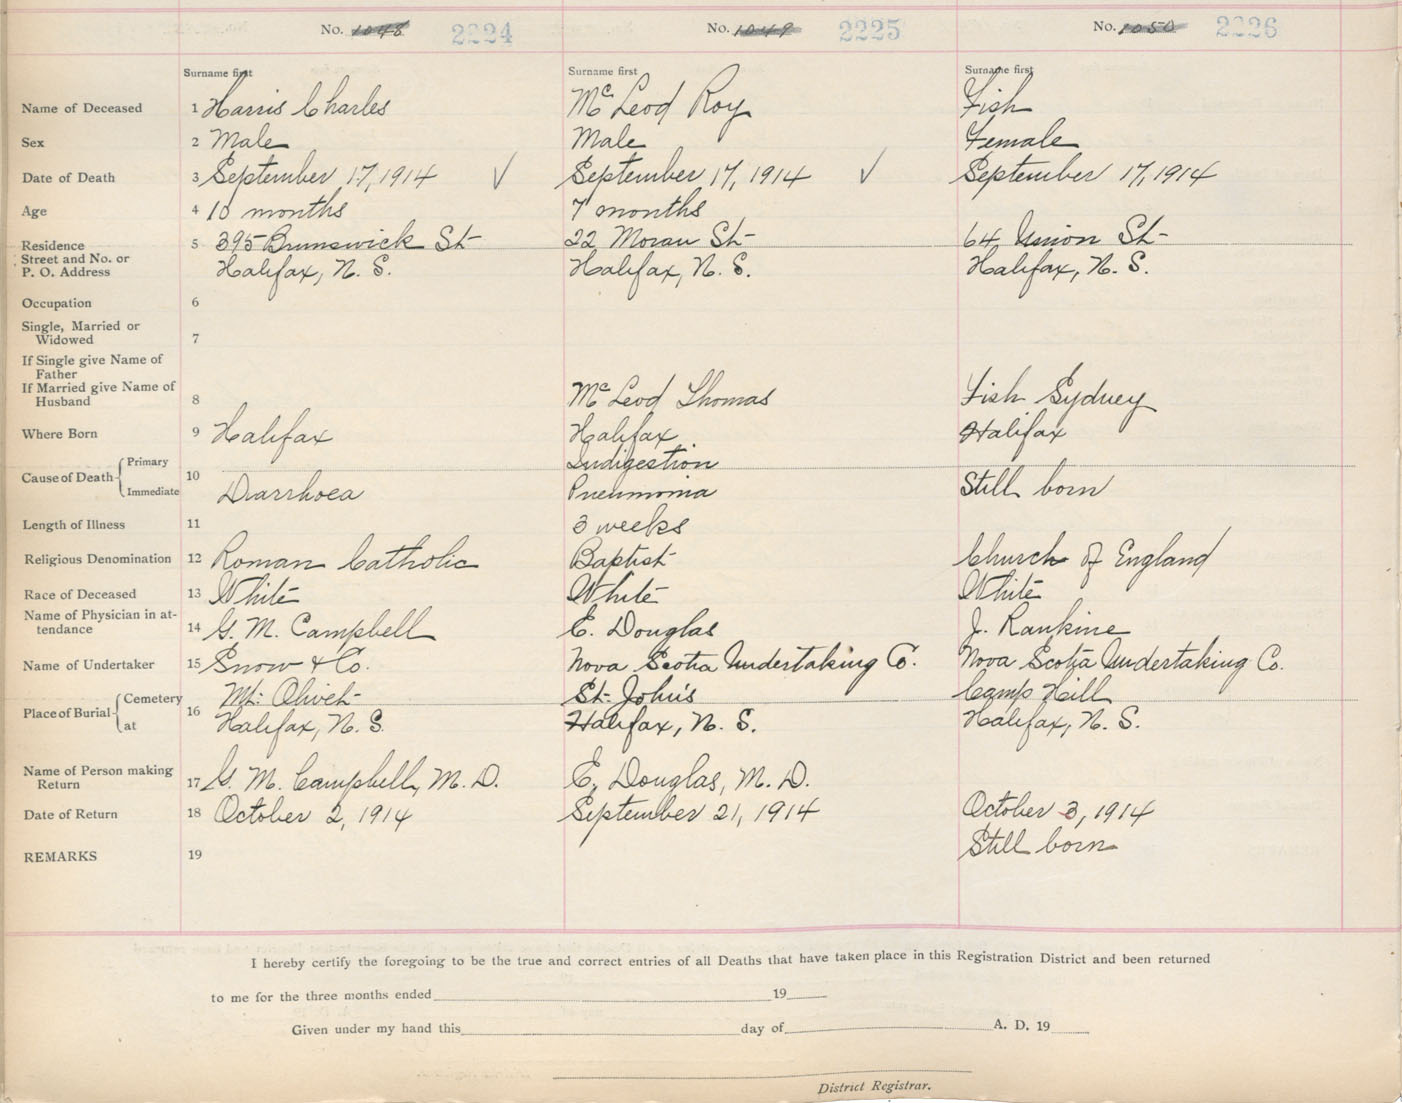 No. 1048 2224 No. 1049 2225 No. 1050 2226
Surname first Surname first Surname first
Name of Deceased 1 Harris Charles McLeod Roy Fish
Sex 2 Male Male Female
Date of Death 3 September 17, 1914 ✓ September 17, 1914 ✓ September 17, 1914
Age 4 10 months 7 months
Residence 5 395 Brunswick St 22 Moran St 64 Union St
Street and No. or
P. O. Address Halifax, N. S. Halifax, N. S. Halifax, N. S.
Occupation 6
Single, Married or
Widowed 7
If Single give Name of
Father
If Married give Name of
Husband 8 McLeod Thomas Fish Sydney
Where Born 9 Halifax Halifax Halifax
Primary Indigestion
Cause of Death 10
Immediate Diarrhoea Pneumonia Still born
Length of Illness 11 3 weeks
Religious Denomination 12 Roman Catholic Baptist Church of England
Race of Deceased 13 White White White
Name of Physician in at-
tendance 14 G. M. Campbell E. Douglas J. Rankine
Name of Undertaker 15 Snow & Co. Nova Scotia Undertaking Co. Nova Scotia Undertaking Co.
Cemetery Mt. Olivet St. John's Camp Hill
Place of Burial 16
at Halifax, N. S. Halifax, N. S. Halifax, N. S.
Name of Person making
Return 17 G. M. Campbell, M. D. E. Douglas, M. D.
Date of Return 18 October 2, 1914 September 21, 1914 October 3, 1914
REMARKS 19 Still born
I hereby certify the foregoing to be the true and correct entries of all Deaths that have taken place in this Registration District and been returned
to me for the three months ended 19
Given under my hand this day of A. D. 19
District Registrar.